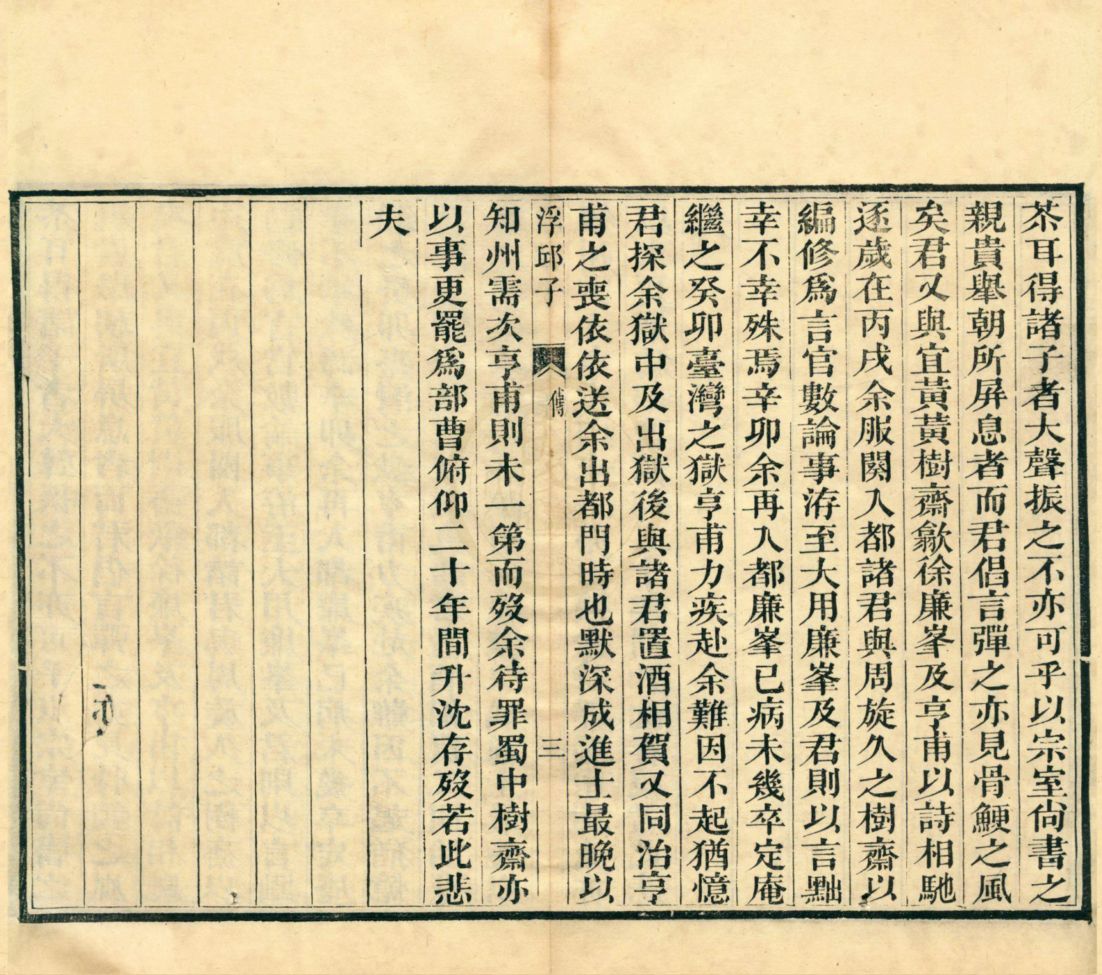 茶耳得諸子者大聲振之不亦可乎以宗室尙書之
親貴舉朝所屏息者而君倡言彈之亦見骨鯁之風
矣君又與宜黃黃樹齋歙徐廉峯及亨甫以詩相馳
逐歲在丙戌余服闋入都諸君與周旋久之樹齋以
編修爲言官數論事洊至大用廉峯及君則以言黜
幸不幸殊焉辛卯余再入都廉峯已病未幾卒定庵
繼之癸卯臺灣之獄亨甫力疾赴余難因不起猶憶
君探余獄中及出獄後與諸君置酒相賀又同治亨
甫之喪依依送余出都門時也默深成進士最晚以
浮邱子 傳 三
知州需次亨甫則未一第而歿余待罪蜀中樹齋亦
以事更罷爲部曹俯仰二十年間升沈存歿若此悲
夫